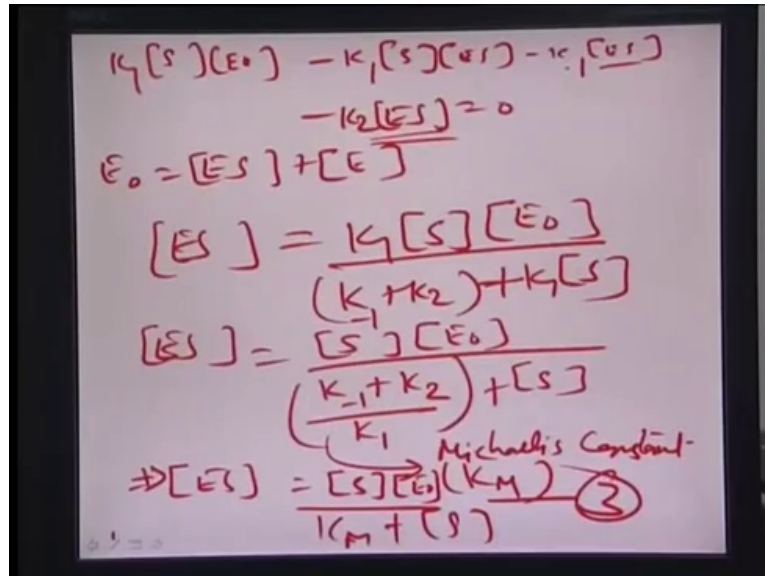 K₁[S][E₀] - K₁[S][ES] - K₋₁[ES]
- K₂[ES] = 0
E₀ = [ES] + [E]
[ES] = K₁[S][E₀] / (K₋₁ + K₂) + K₁[S]
[ES] = [S][E₀] / (K₋₁ + K₂ / K₁) + [S]
Michaelis Constant
⇒ [ES] = [S][E₀] / K_M + [S] (K_M) ③